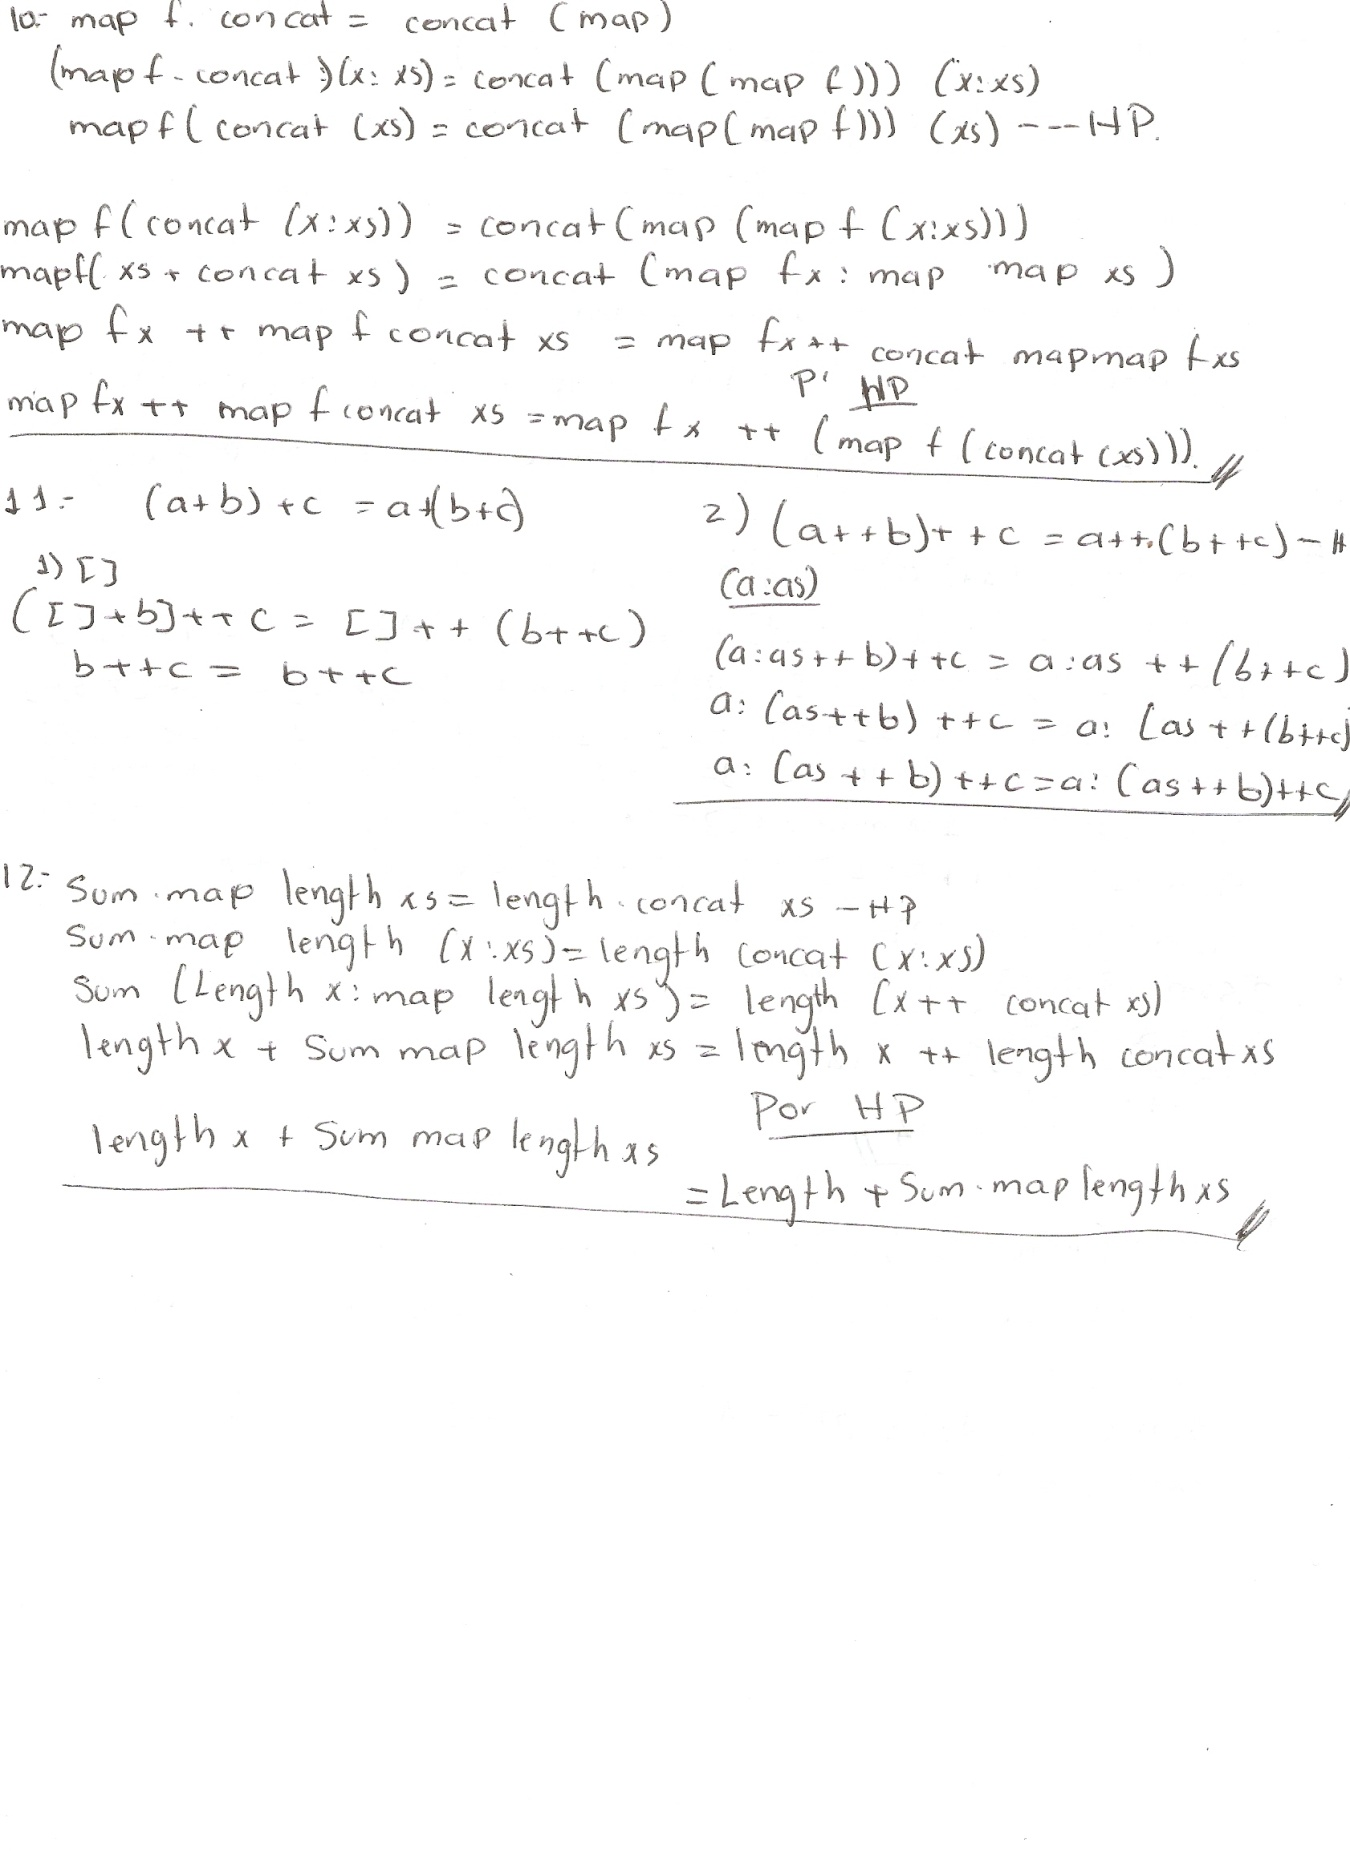 10.- map f. concat = concat (map)
(map f - concat )(x: xs) = concat (map (map f))) (x:xs)
map f( concat (xs) = concat (map(map f))) (xs) --- HP.
map f( concat (x:xs)) = concat (map (map f (x:xs)))
mapf( xs + concat xs ) = concat (map fx : map map xs )
map fx ++ map f concat xs = map fx ++ concat mapmap fxs
P' HP
map fx ++ map f concat xs = map fx ++ (map f (concat (xs))).
11.- (a+b) +c = a+(b+c)
1) []
([]+b]++c = []++ (b++c)
b++c = b++c
2) (a++b)++c = a++(b++c) - H
(a:as)
(a:as++b)++c = a:as ++(b++c)
a: (as++b) ++c = a: (as ++(b++c)
a: (as ++b) ++c = a: (as ++b)++c
12.- Sum.map length xs = length.concat xs - HP
Sum.map length (x:xs) = length concat (x:xs)
Sum (Length x: map length xs) = length (x++ concat xs)
length x + Sum map length xs = length x ++ length concat xs
Por HP
length x + Sum map length xs
= Length + Sum.map length xs